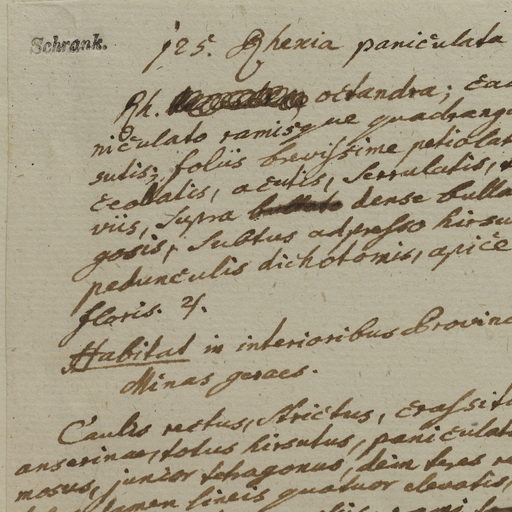 Schrank.
125. Rhexia paniculata
Rh. octandra; cau
niculato ramisque quadrang
sutis; foliis brevissime petiolat
acutis, serrulatis,
viis, supra dense bulla
gosis, subtus adpresso hirsu
pedunculis dichotomis, apice
floris. 4.
Habitat in interioribus Provinc
Minas geraes.
Caulis rectus, strictus, crassit
anserinae, totus hirsutus, paniculat
mosus, junior tetragonus, dein teres
tamen lineis quatuor elevatis,